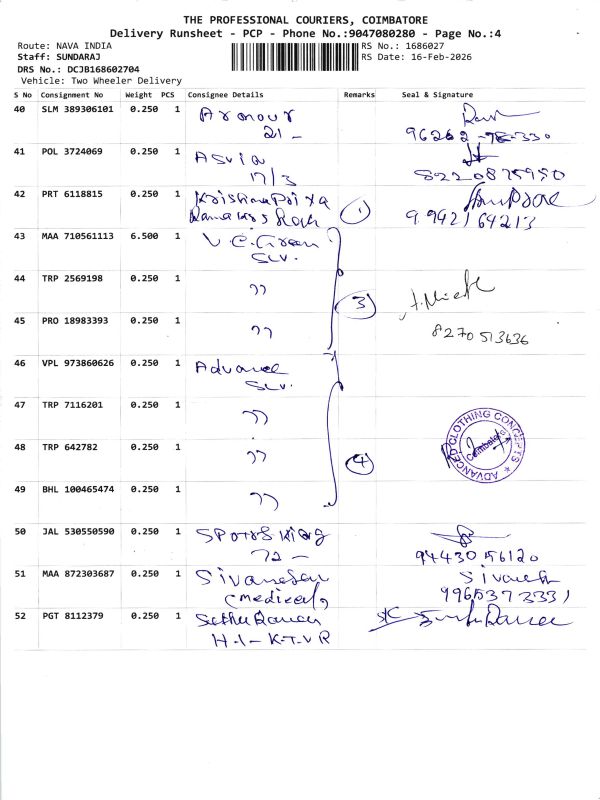 THE PROFESSIONAL COURIERS, COIMBATORE
Delivery Runsheet - PCP - Phone No.:9047080280 - Page No.:4
Route: NAVA INDIA RS No.: 1686027
Staff: SUNDARAJ RS Date: 16-Feb-2026
DRS No.: DCJB168602704
Vehicle: Two Wheeler Delivery
S No Consignment No Weight PCS Consignee Details Remarks Seal & Signature
40 SLM 389306101 0.250 1 Armour
21 -
41 POL 3724069 0.250 1 Asvia
17/3 8220875950
42 PRT 6118815 0.250 1
1 9.942164213
43 MAA 710561113 6.500 1 V.C. Green
SLV.
44 TRP 2569198 0.250 1 ,,
3
45 PRO 18983393 0.250 1 ,,
8270513636
46 VPL 973860626 0.250 1 Advance
SLV.
47 TRP 7116201 0.250 1 ,,
48 TRP 642782 0.250 1 ,, 4 ADVANCED CLOTHING CONCEPTS
Coimbatore
49 BHL 100465474 0.250 1 ,,
50 JAL 530550590 0.250 1 Sports King
72 - 9443056120
51 MAA 872303687 0.250 1 Sivanesan Sivanesh
(medicals) 9965373331
52 PGT 8112379 0.250 1
H.I - K.T.V.R